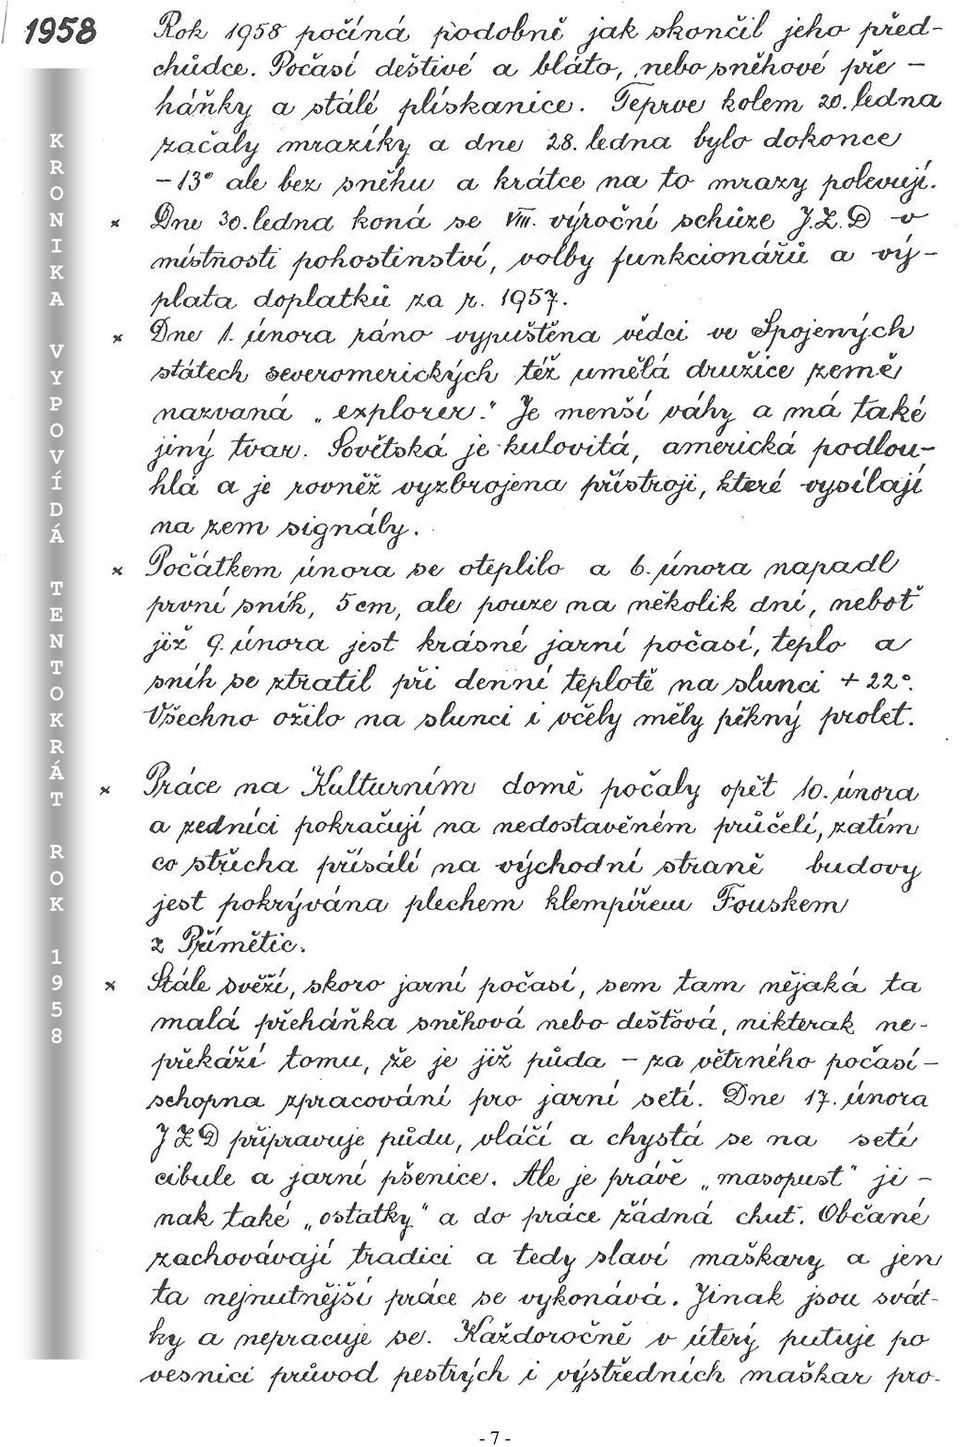 1958
Rok 1958 počíná podobně jak skončil jeho před-
chůdce. Počasí deštivé a bláto, nebo sněhové pře-
háňky a stálé plískanice. Teprve kolem 20. ledna
začaly mrazíky a dne 28. ledna bylo dokonce
-13° ale bez sněhu a krátce na to mrazy polevují.
× Dne 30. ledna koná se VIII. výroční schůze J.Z.D v
místnosti pohostinství, volby funkcionářů a vý-
plata doplatků za r. 1957.
× Dne 1. února ráno vypuštěna vědci ve Spojených
státech severomerických též umělá družice země
nazvaná „explorer." Je menší váhy a má také
jiný tvar. Sovětská je kulovitá, americká podlou-
hlá a je rovněž vyzbrojena přístroji, které vysílají
na zem signály.
× Počátkem února se oteplilo a 6. února napadl
první sníh, 5 cm, ale pouze na několik dní, neboť
již 9. února jest krásné jarní počasí, teplo a
sníh se ztratil při denní teplotě na slunci + 22°.
Všechno ožilo na slunci i včely měly pěkný prolet.
× Práce na Kulturním domě počaly opět 10. února
a zedníci pokračují na nedostavěném průčelí, zatím
co střecha přísálí na východní straně budovy
jest pokrývána plechem klempířem Fouskem
z Přímětic.
× Stále svěží, skoro jarní počasí, sem tam nějaká ta
malá přeháňka sněhová nebo dešťová, nikterak ne-
překáží tomu, že je již půda - za větrného počasí -
schopna zpracování pro jarní setí. Dne 17. února
JZD připravuje půdu, vláčí a chystá se na setí
cibule a jarní pšenice. Ale je právě „masopust" ji-
nak také „ostatky" a do práce žádná chuť. Občané
zachovávají tradici a tedy slaví maškary a jen
ta nejnutnější práce se vykonává. Jinak jsou svát-
ky a nepracuje se. Každoročně v úterý putuje po
vesnici průvod pestrých i výstředních maškar pro-
KRONIKA VYPOVÍDÁ TENTOKRÁT ROK 1958
- 7 -